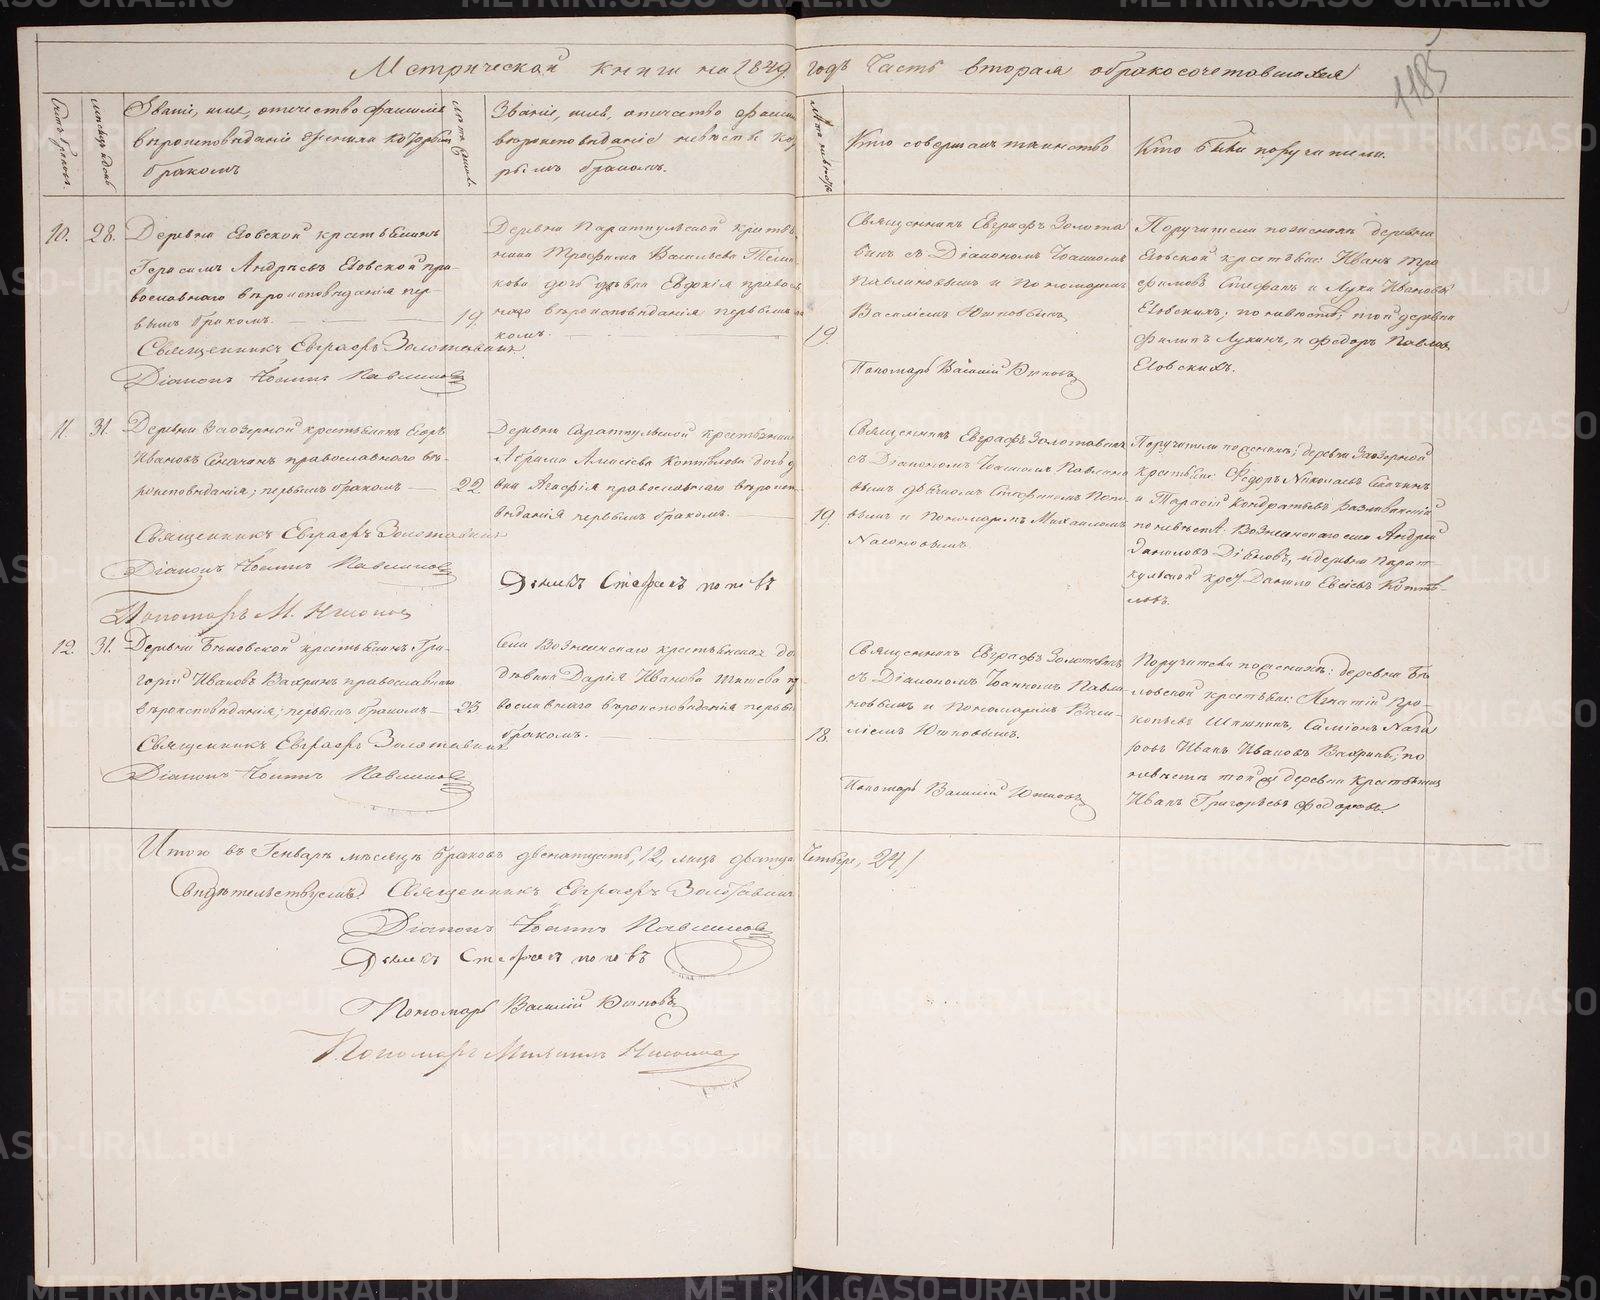 Метрической книги на 1849 годъ Часть вторая о бракосочетавшихся
1185
Счетъ браковъ.
Мѣсяцъ и день
Званіе, имя, отечество фамилія
вѣроисповѣданіе жениха которымъ
бракомъ
Лѣта жениха.
Званіе, имя, отчество фамилія
вѣроисповѣданіе невѣсты ко
рымъ бракомъ.
Лѣта невѣсты
Кто совершалъ таинство
Кто были поручители.
10.
28.
Деревни Еловской крестьянинъ
Герасимъ Андрѣевъ Еловской пра-
вославнаго вѣроисповѣданія пер-
вымъ бракомъ.
Священникъ Евграфъ Золотавинъ
Діаконъ Іоаннъ Павлиновъ
19.
Деревни Параткульской крестья
нина Трофима Васильева
кова дочь дѣвка Евдокія правосла
наго вѣроисповѣданія первымъ
комъ.
19.
Священникъ Евграфъ Золота
винъ съ Діакономъ Іоанномъ
Павлиновымъ и Пономаремъ
Василіемъ Юшковымъ
Пономарь Василій Юшковъ
Поручители по женихѣ деревни
Еловской крестьяне: Иванъ Тро
фимовъ Стефанъ и Лука Ивановы
Еловскихъ; по невѣстѣ, той деревни
Филипъ Лукинъ, и Федоръ Павловъ
Еловскихъ.
11.
31.
Деревни Заозерной крестьянинъ Егоръ
Ивановъ православнаго вѣ-
роисповѣданія; первымъ бракомъ
Священникъ Евграфъ Золотавинъ
Діаконъ Іоаннъ Павлиновъ
Пономарь М. Насоновъ
22
Деревни Параткульской крестьянина
Абрама Алексѣева Коптѣлова дочь д
вка Агафія православнаго вѣроиспо
вѣданія первымъ бракомъ.
Дьячекъ Стефанъ поповъ
19.
Священникъ Евграфъ Золотавинъ
съ Діакономъ Іоанномъ Павлино
вымъ дьячкомъ Стефаномъ Попо-
вымъ и Пономаремъ Михаиломъ
Насоновымъ
Поручители по женихѣ; деревни Заозерной
крестьяне: Федоръ Николаевъ
и Тарасій Кондратьевъ
по невѣстѣ. Вознесенскаго села Андрей
Даниловъ и деревни Парат-
кульской крест. Данило Евсѣевъ Коптѣ-
ловъ.
12.
31.
Деревни Бѣловской крестьянинъ Гри-
горій Ивановъ Вахринъ православнаго
вѣроисповѣданія; первымъ бракомъ
Священникъ Евграфъ Золотавинъ
Діаконъ Іоаннъ Павлиновъ
23
Села Вознесенскаго крестьянская до
дѣвица Дарія Иванова пр
вославнаго вѣроисповѣданія первы
бракомъ.
18.
Священникъ Евграфъ Золотавинъ
съ Діакономъ Іоанномъ Павли-
новымъ и Пономаремъ Васи-
ліемъ Юшковымъ.
Пономарь Василій Юшковъ
Поручители по женихѣ: деревни Бѣ
ловской крестьяне: Игнатій Про-
копьевъ Симіонъ Наза
ровъ Иванъ Ивановъ Вахрины; по
невѣстѣ той деревни крестьянинъ
Иванъ Григорьевъ Федоровъ.
Итого въ Генварѣ мѣсяцѣ браковъ двенатцать, 12, лицъ дватца Четыре, 24
Свидѣтельствуемъ. Священникъ Евграфъ Золотавинъ
Діаконъ Іоаннъ Павлиновъ
Дьячекъ Стефанъ поповъ
Пономарь Василій Юшковъ
Пономарь Михаилъ Насоновъ